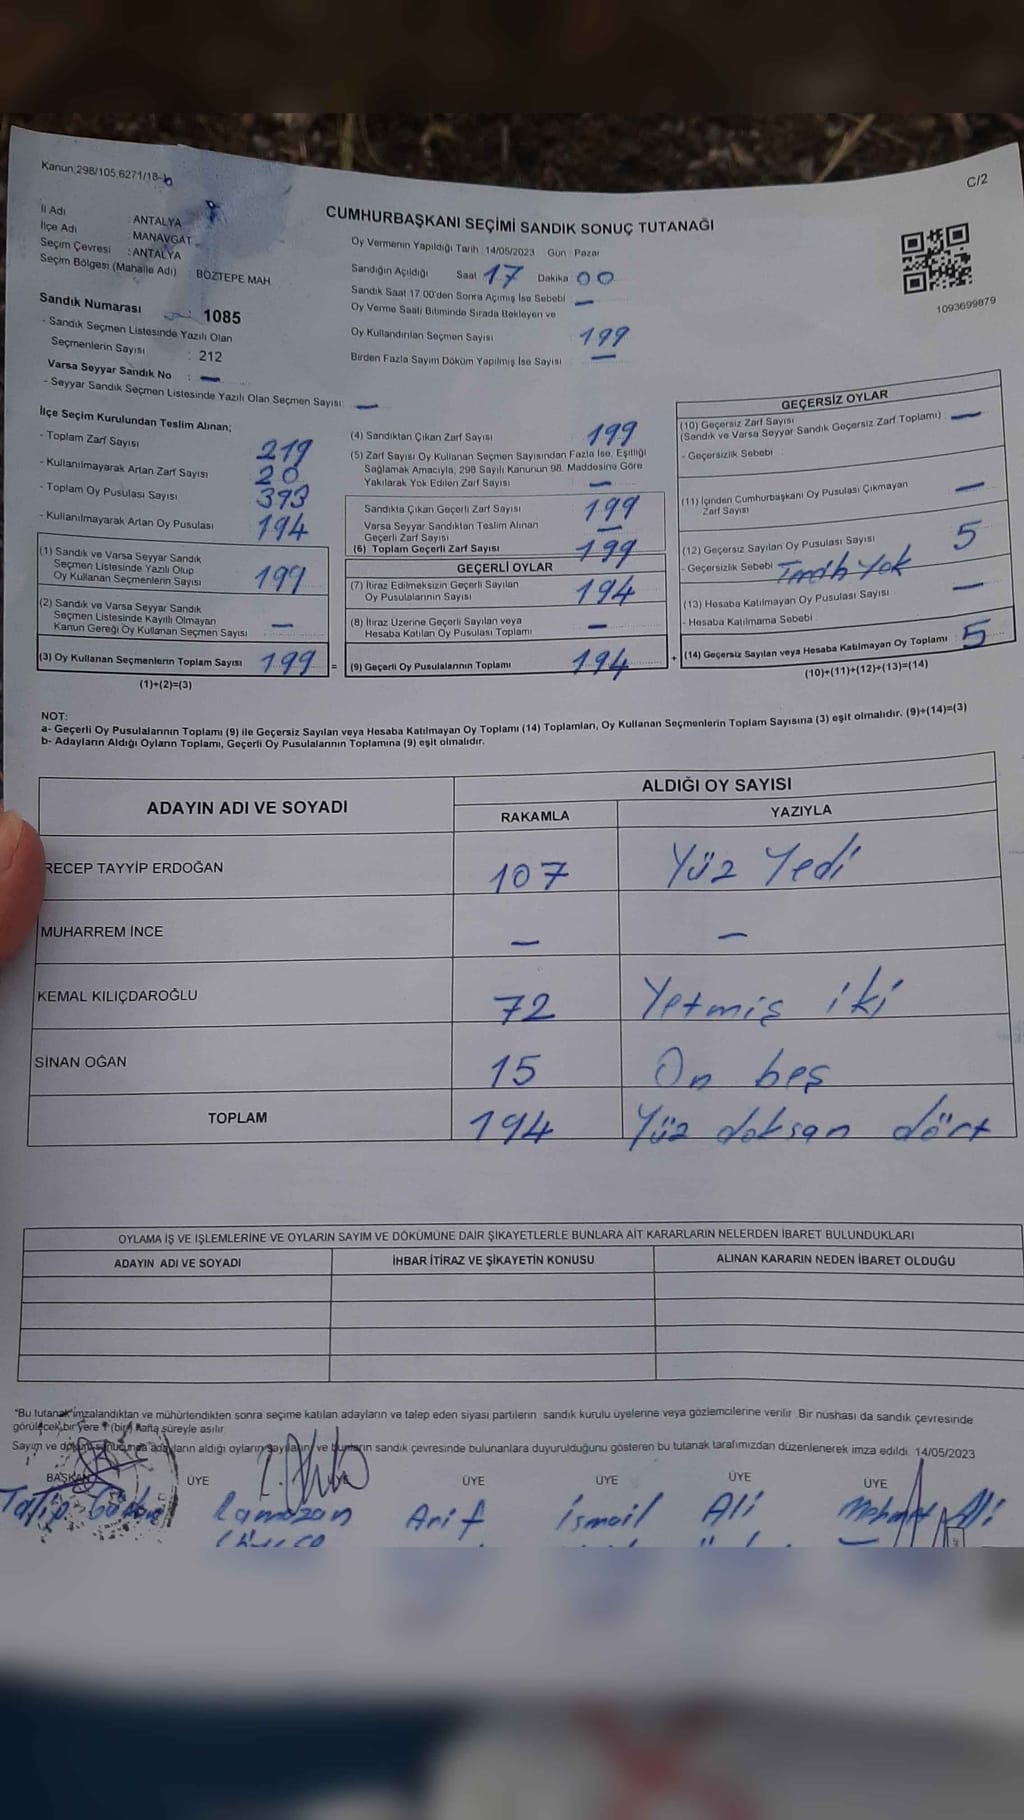 Kanun:298/105,6271/18-b
C/2
CUMHURBAŞKANI SEÇİMİ SANDIK SONUÇ TUTANAĞI
İl Adı : ANTALYA
İlçe Adı : MANAVGAT
Seçim Çevresi : ANTALYA
Seçim Bölgesi (Mahalle Adı) BOZTEPE MAH.
Oy Vermenin Yapıldığı Tarih : 14/05/2023 Gün : Pazar
Sandığın Açıldığı Saat 17 Dakika 00
Sandık Saat 17.00'den Sonra Açımış İse Sebebi —
Oy Verme Saati Bitiminde Sırada Bekleyen ve
Oy Kullandırılan Seçmen Sayısı 199
Birden Fazla Sayım Döküm Yapılmış İse Sayısı —
1093699879
Sandık Numarası : 1085
- Sandık Seçmen Listesinde Yazılı Olan
Seçmenlerin Sayısı : 212
Varsa Seyyar Sandık No : —
- Seyyar Sandık Seçmen Listesinde Yazılı Olan Seçmen Sayısı: —
İlçe Seçim Kurulundan Teslim Alınan;
- Toplam Zarf Sayısı 219
- Kullanılmayarak Artan Zarf Sayısı 20
- Toplam Oy Pusulası Sayısı 393
- Kullanılmayarak Artan Oy Pusulası 194
(1) Sandık ve Varsa Seyyar Sandık
Seçmen Listesinde Yazılı Olup
Oy Kullanan Seçmenlerin Sayısı 199
(2) Sandık ve Varsa Seyyar Sandık
Seçmen Listesinde Kayıtlı Olmayan
Kanun Gereği Oy Kullanan Seçmen Sayısı —
(3) Oy Kullanan Seçmenlerin Toplam Sayısı 199
(1)+(2)=(3)
(4) Sandıktan Çıkan Zarf Sayısı 199
(5) Zarf Sayısı Oy Kullanan Seçmen Sayısından Fazla İse, Eşitliği
Sağlamak Amacıyla, 298 Sayılı Kanunun 98. Maddesine Göre
Yakılarak Yok Edilen Zarf Sayısı —
Sandıkta Çıkan Geçerli Zarf Sayısı 199
Varsa Seyyar Sandıktan Teslim Alınan
Geçerli Zarf Sayısı —
(6) Toplam Geçerli Zarf Sayısı 199
GEÇERLİ OYLAR
(7) İtiraz Edilmeksizin Geçerli Sayılan
Oy Pusulalarının Sayısı 194
(8) İtiraz Üzerine Geçerli Sayılan veya
Hesaba Katılan Oy Pusulası Toplamı —
= (9) Geçerli Oy Pusulalarının Toplamı 194
GEÇERSİZ OYLAR
(10) Geçersiz Zarf Sayısı
(Sandık ve Varsa Seyyar Sandık Geçersiz Zarf Toplamı) : —
- Geçersizlik Sebebi :
(11) İçinden Cumhurbaşkanı Oy Pusulası Çıkmayan
Zarf Sayısı —
(12) Geçersiz Sayılan Oy Pusulası Sayısı 5
- Geçersizlik Sebebi : Yok
(13) Hesaba Katılmayan Oy Pusulası Sayısı —
- Hesaba Katılmama Sebebi :
+ (14) Geçersiz Sayılan veya Hesaba Katılmayan Oy Toplamı : 5
(10)+(11)+(12)+(13)=(14)
NOT:
a- Geçerli Oy Pusulalarının Toplamı (9) ile Geçersiz Sayılan veya Hesaba Katılmayan Oy Toplamı (14) Toplamları, Oy Kullanan Seçmenlerin Toplam Sayısına (3) eşit olmalıdır. (9)+(14)=(3)
b- Adayların Aldığı Oyların Toplamı, Geçerli Oy Pusulalarının Toplamına (9) eşit olmalıdır.
ADAYIN ADI VE SOYADI ALDIĞI OY SAYISI
RAKAMLA YAZIYLA
RECEP TAYYİP ERDOĞAN 107 Yüz Yedi
MUHARREM İNCE — —
KEMAL KILIÇDAROĞLU 72 Yetmiş iki
SİNAN OĞAN 15 On beş
TOPLAM 194 Yüz doksan dört
OYLAMA İŞ VE IŞLEMLERİNE VE OYLARIN SAYIM VE DÖKÜMÜNE DAİR ŞİKAYETLERLE BUNLARA AİT KARARLARIN NELERDEN İBARET BULUNDUKLARI
ADAYIN ADI VE SOYADI İHBAR İTİRAZ VE ŞİKAYETİN KONUSU ALINAN KARARIN NEDEN İBARET OLDUĞU
"Bu tutanak imzalandıktan ve mühürlendikten sonra seçime katılan adayların ve talep eden siyasi partilerin sandık kurulu üyelerine veya gözlemcilerine verilir. Bir nüshası da sandık çevresinde
görülecek bir yere 1 (bir) hafta süreyle asılır.
Sayım ve döküm sonucunda adayların aldığı oyların sayılarını ve bunların sandık çevresinde bulunanlara duyurulduğunu gösteren bu tutanak tarafımızdan düzenlenerek imza edildi. 14/05/2023
BAŞKAN ÜYE ÜYE ÜYE ÜYE ÜYE ÜYE
Ramazan Arif İsmail Ali Mehmet Ali